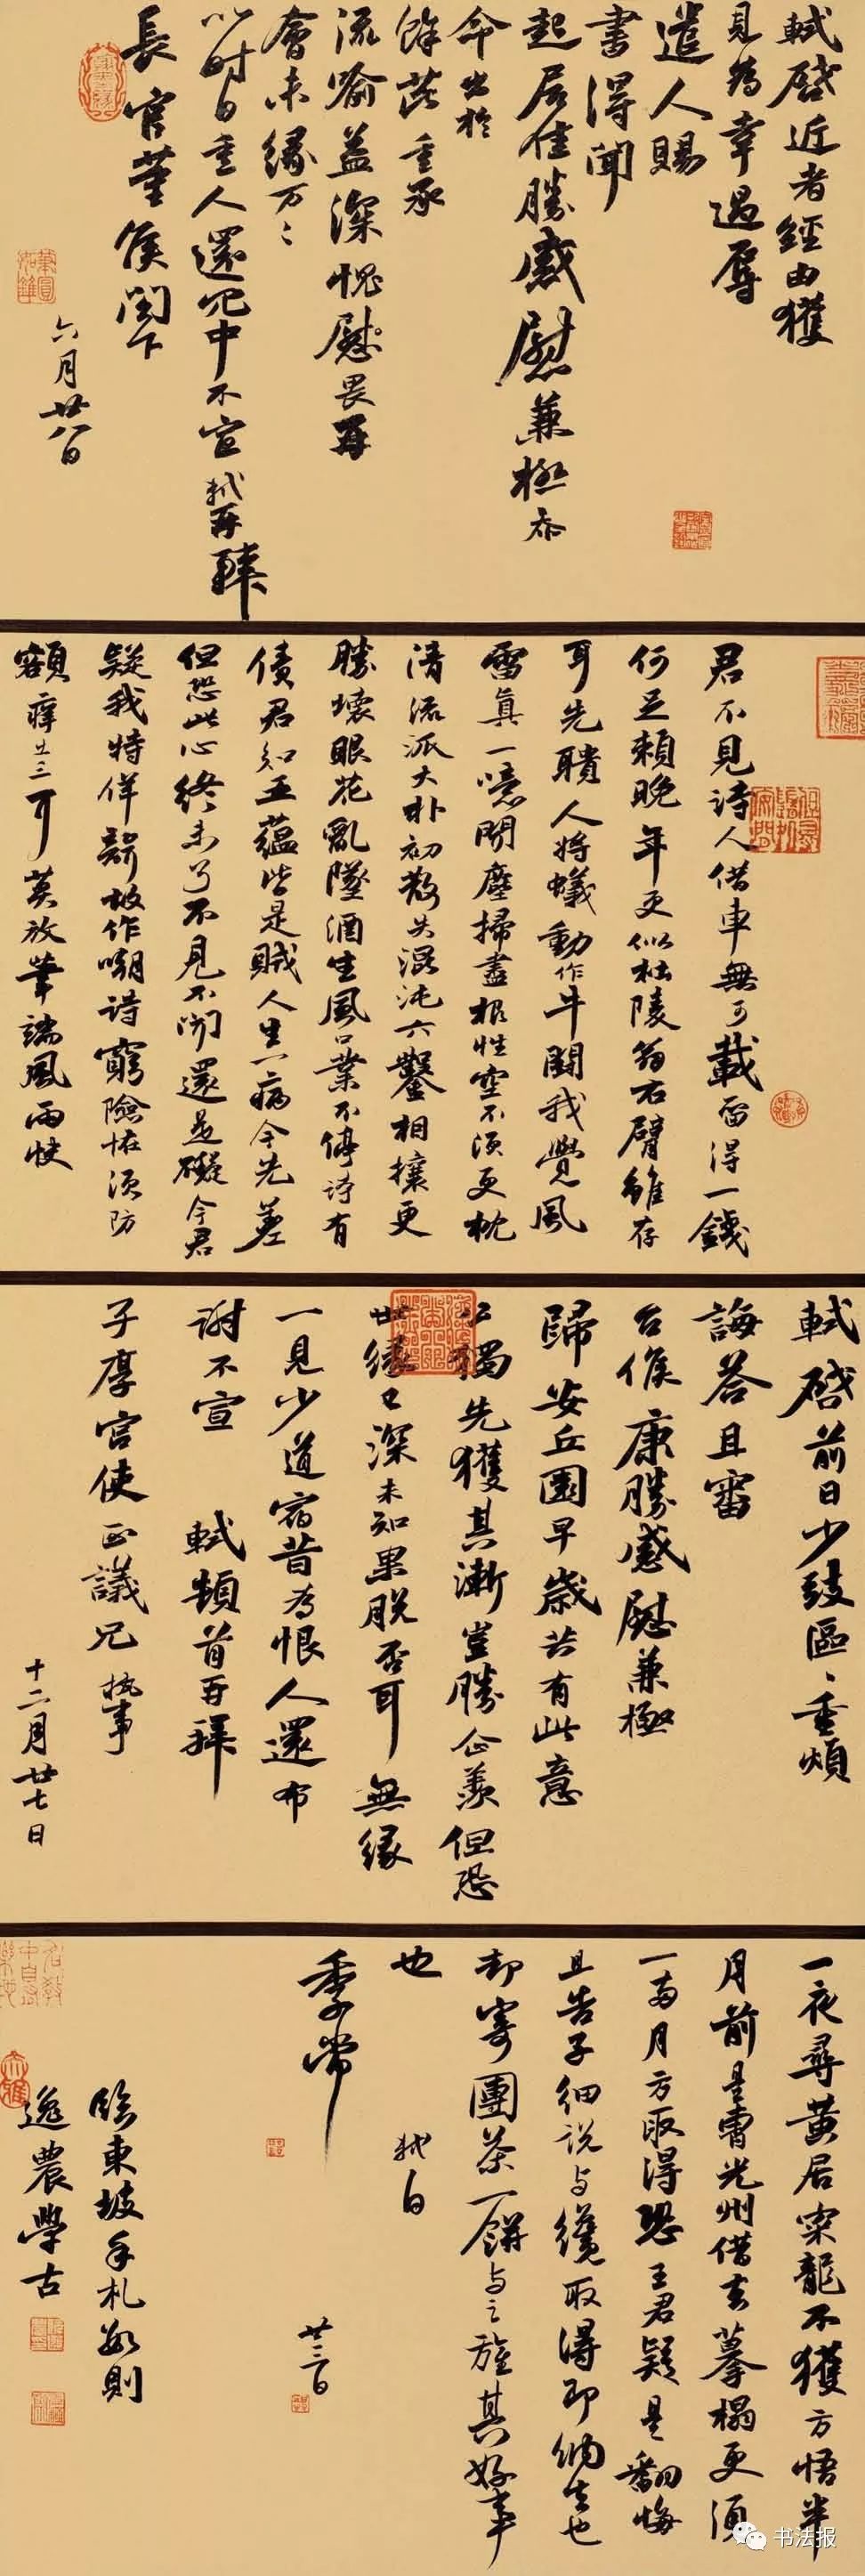 軾啓近者經由獲
見為幸過辱
遣人賜
書得聞
起居佳勝感慰兼極忝
命出於
餘芘重承
流喻益深愧慰畏再
會未緣万〻
以時自重人還冗中不宣軾再拜
長官董侯閣下
六月廿八日
君不見詩人借車無可載留得一錢
何足賴晚年更似杜陵翁右臂雖存
耳先聵人將蟻動作牛鬭我覺風
雷真一噫聞塵掃盡根性空不須更枕
清流派大朴初散失混沌六鑿相攘更
勝壞眼花亂墜酒生風口業不停詩有
債君知五蘊皆是賊人生一病今先差
但恐此心終未了不見不聞還是礙今君
疑我特佯聾故作嘲詩窮險怪須防
額癢出三耳莫放筆端風雨快
軾啓前日少致區〻重煩
誨答且審
台候康勝感慰兼極
歸安丘園早歲共有此意
公獨先獲其漸豈勝企羨但恐
世緣已深未知果脫否耳無緣
一見少道宿昔為恨人還布
謝不宣 軾頓首再拜
子厚宮使正議兄執事
十二月廿七日
一夜尋黃居寀龍不獲方悟半
月前是曹光州借去摹榻更須
一兩月方取得恐王君疑是翻悔
且告子細說與纔取得即納去也
却寄團茶一餅與之旌其好事
也 軾白
季常
廿三日
臨東坡手札數則
逸農學古
书法报